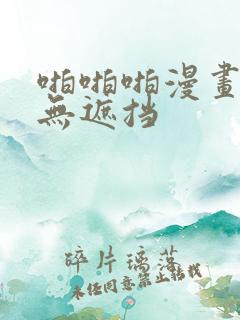 啪啪啪漫畫
無遮挡
碎片璃落
未任同意禁止轉載